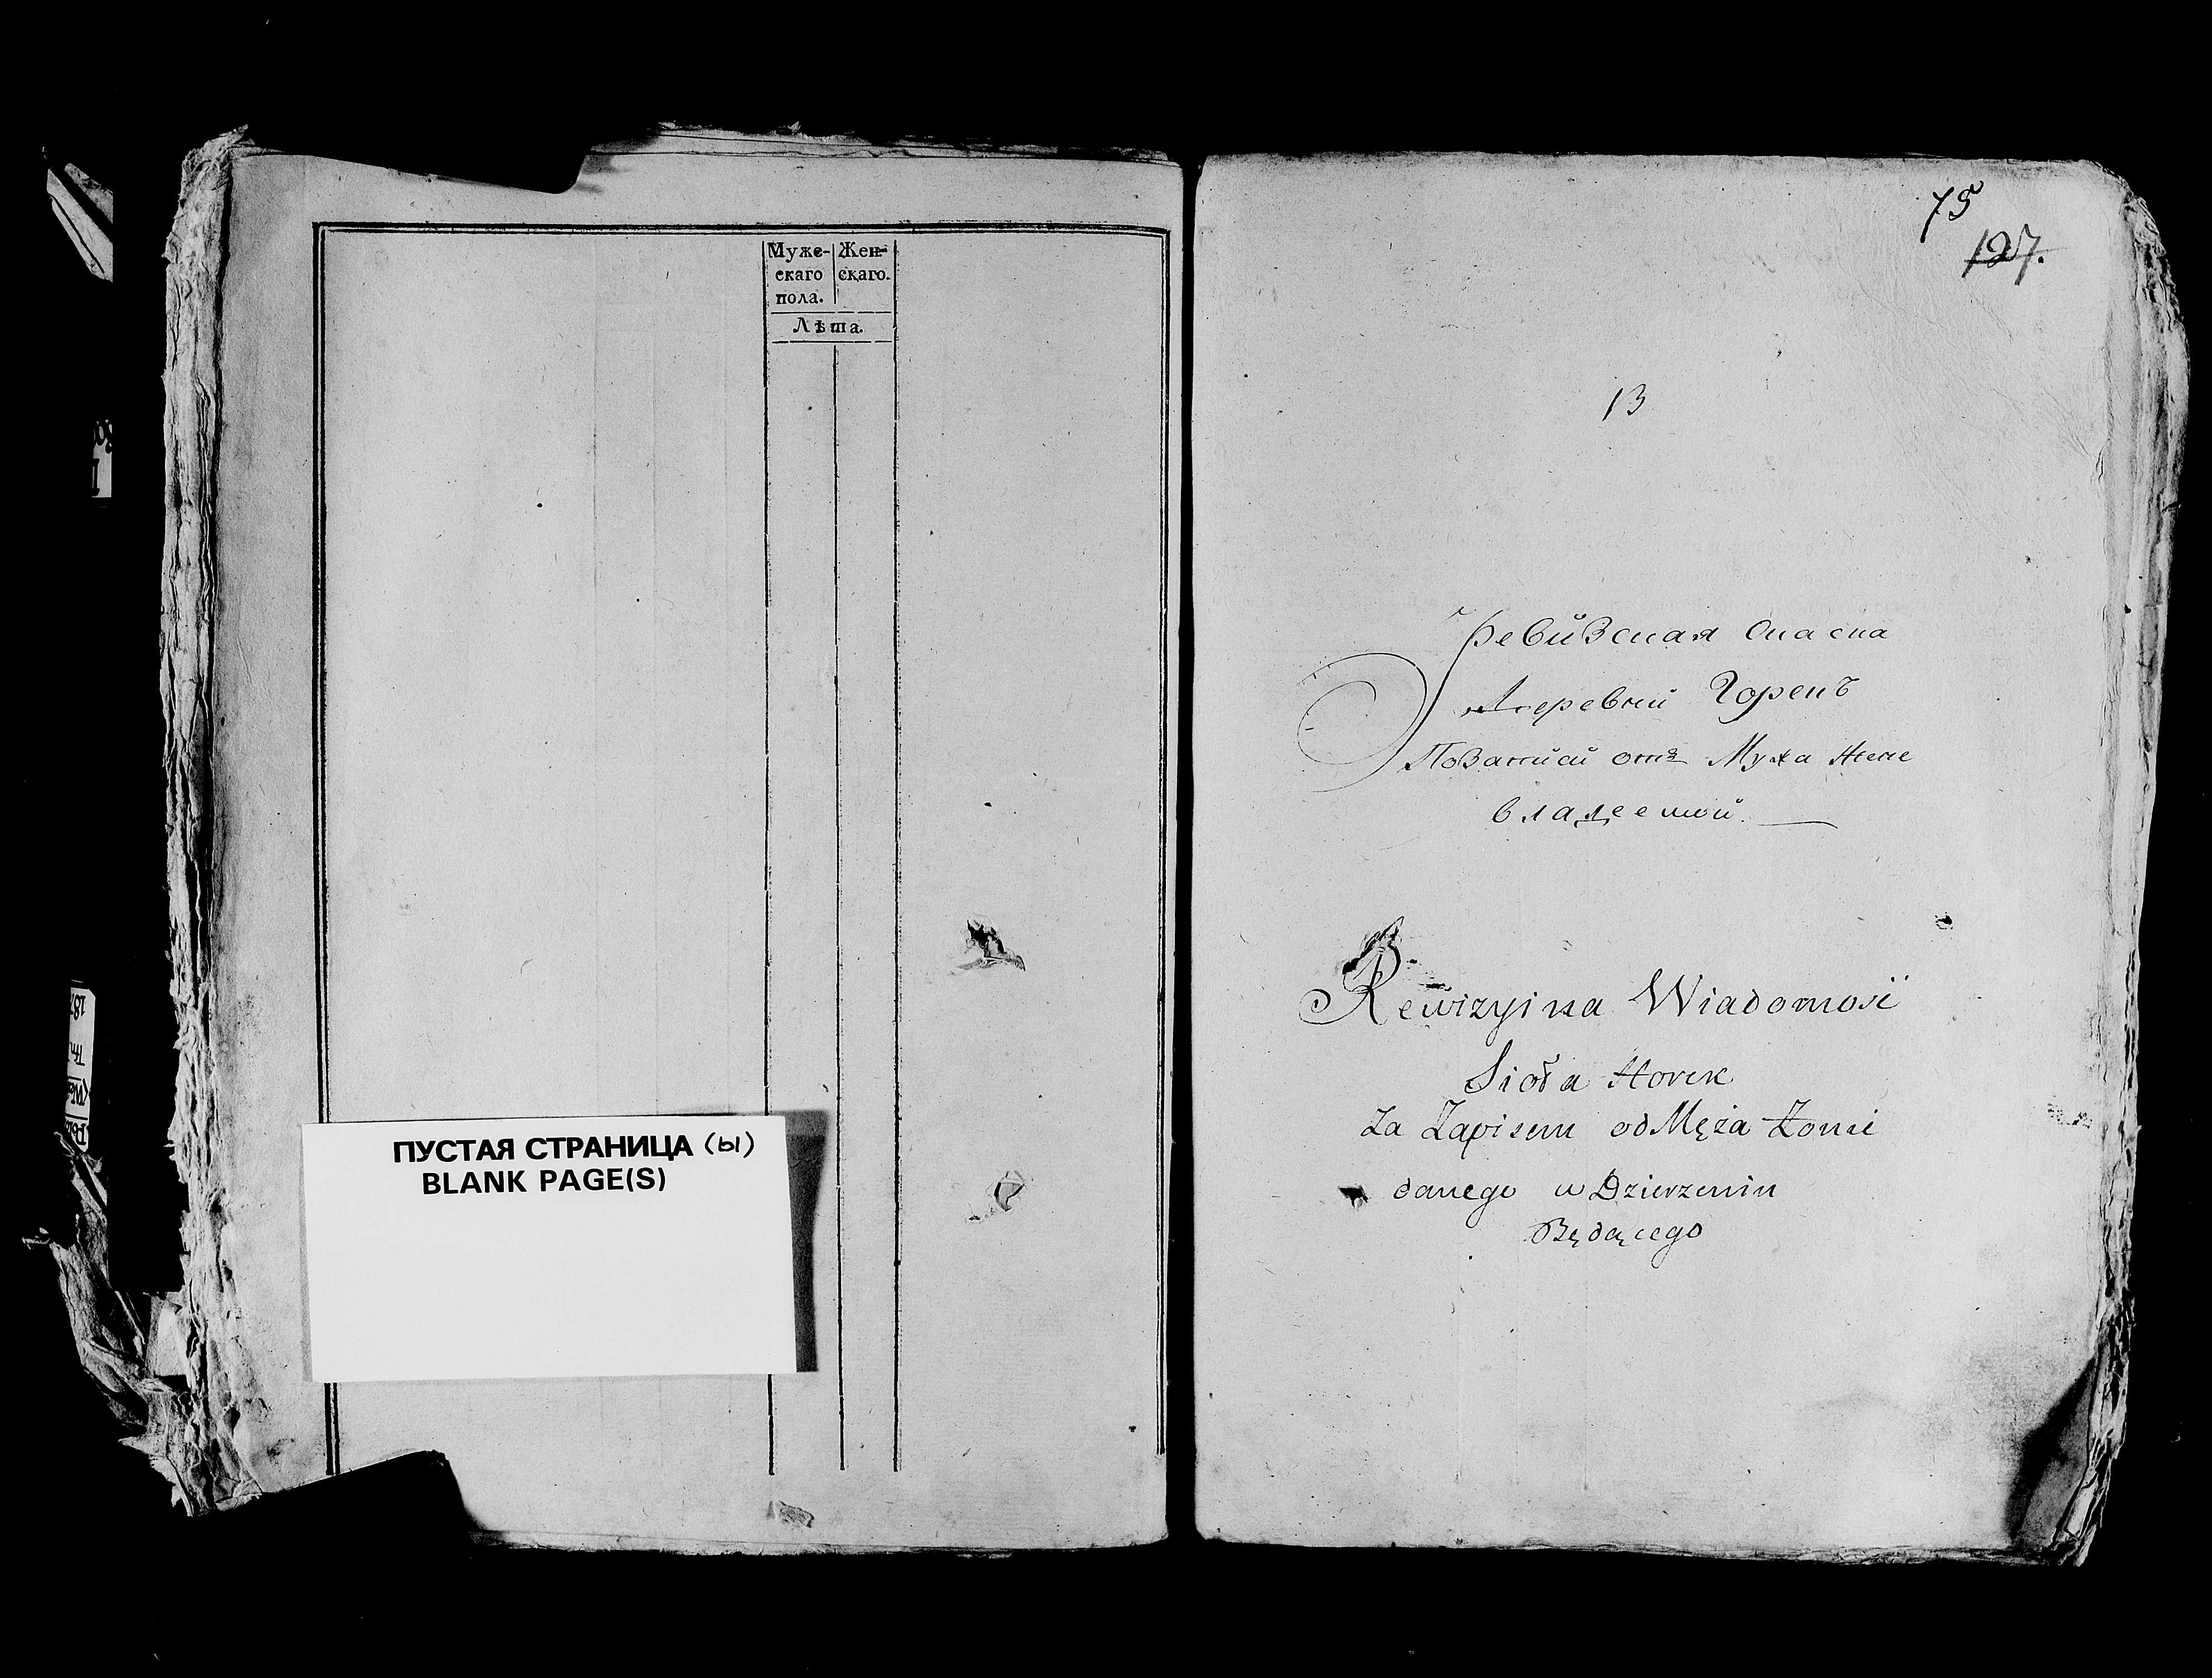 Муже- Жен-
скаго скаго.
пола.
Лѣта.
ПУСТАЯ СТРАНИЦА (ы)
BLANK PAGE(S)
75
127.
13
Ревизская Скаска
деревни Горекъ
По записи отъ Мужа Жене
владеемой.
Rewizyina Wiadomość
Sioła Horek
Za Zapisem od Męża Żonie
danego w Dzierżeniu
Będącego